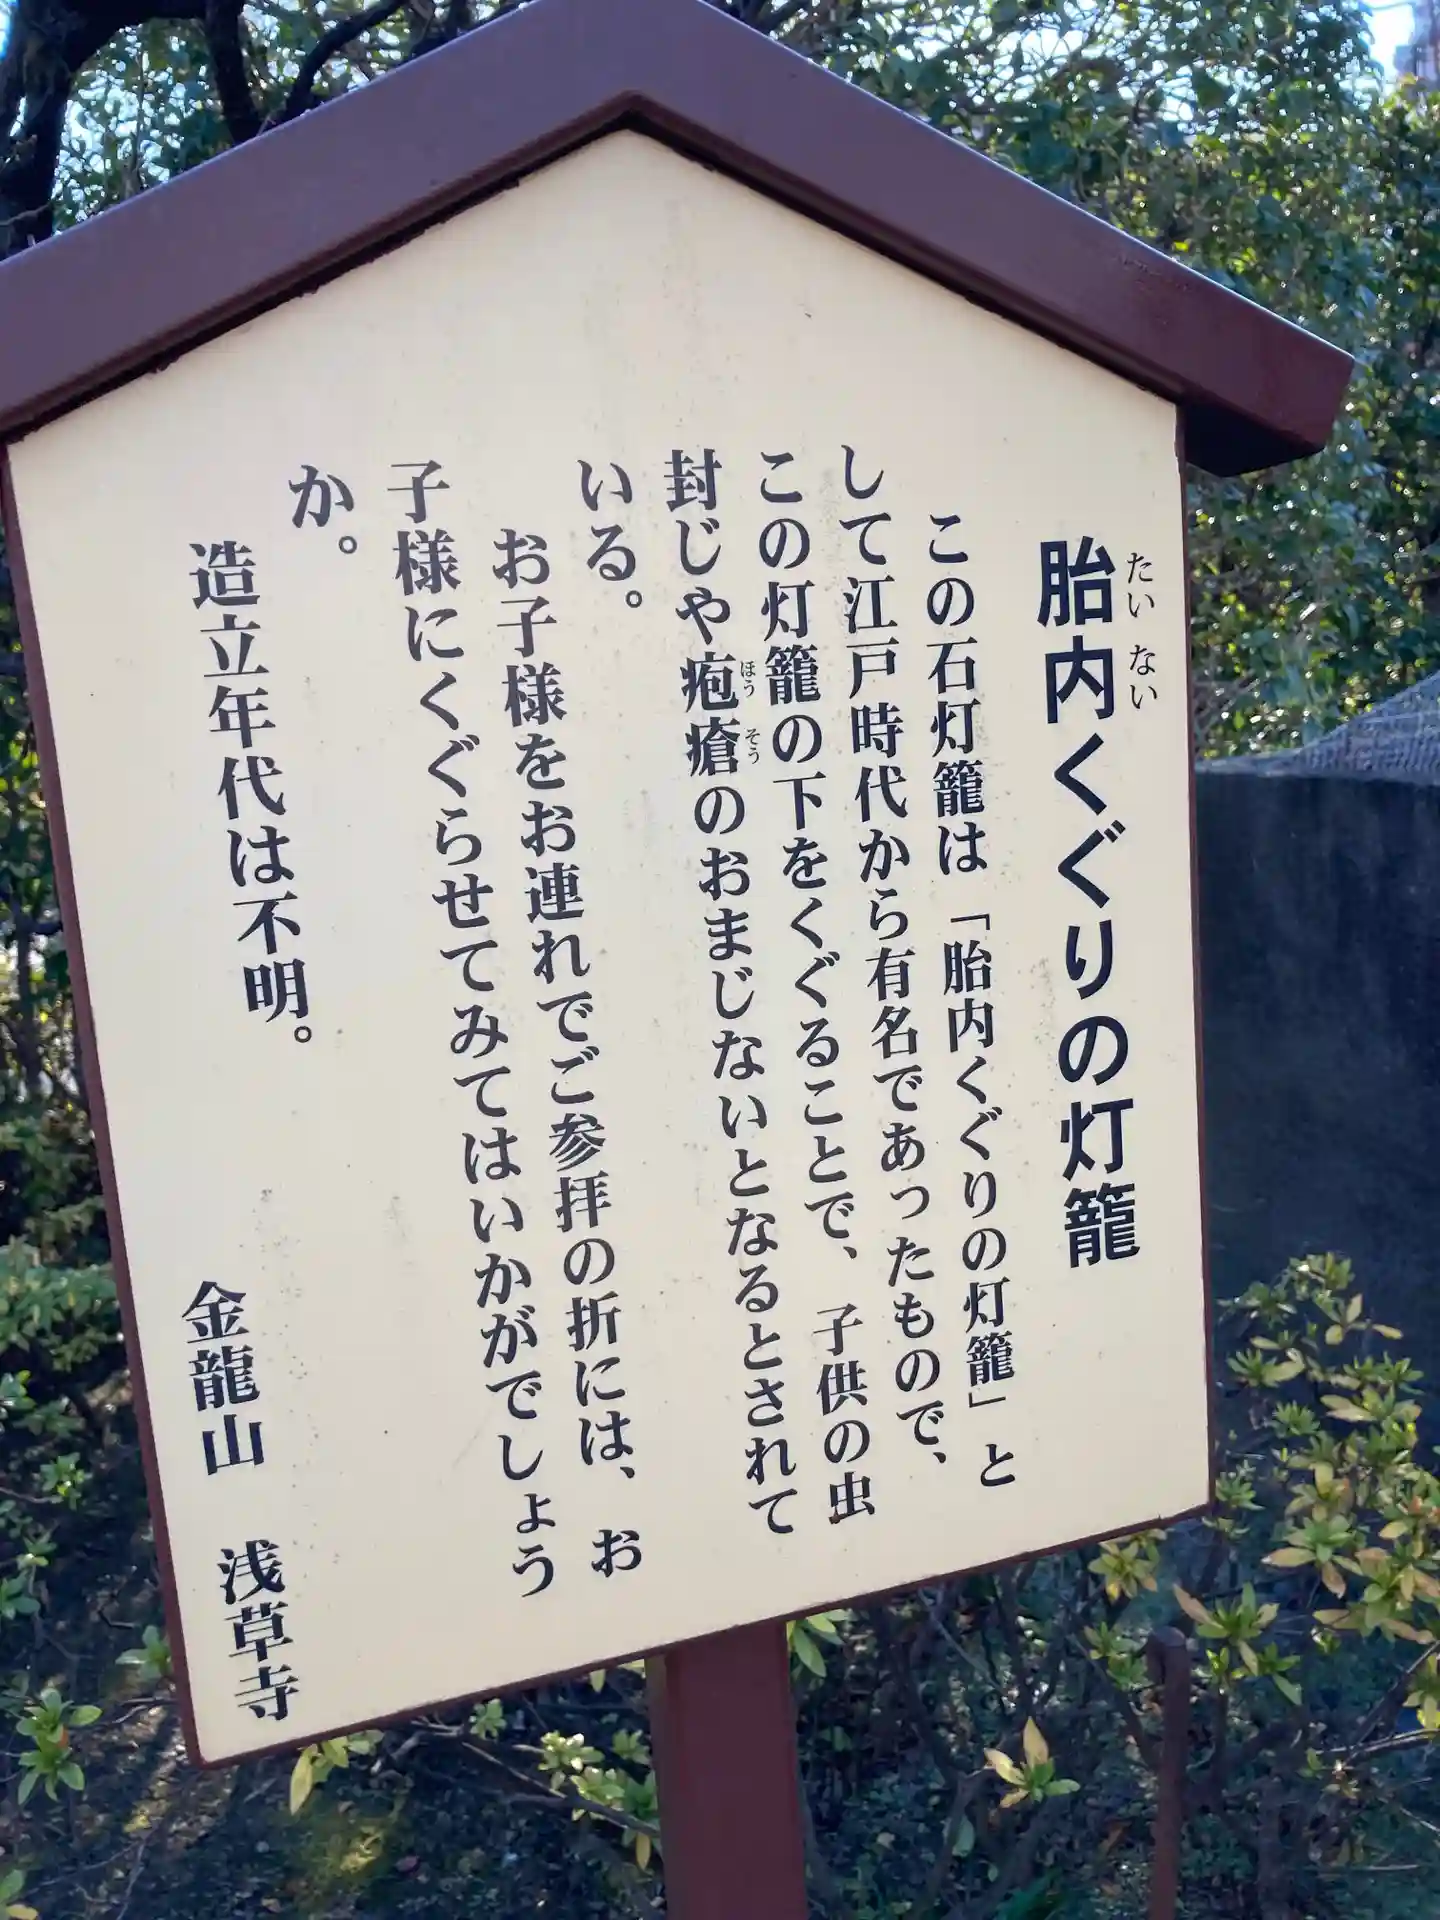 胎内くぐりの灯籠
たいない
この石灯籠は「胎内くぐりの灯籠」と
して江戸時代から有名であったもので、
この灯籠の下をくぐることで、子供の虫
封じや疱瘡のおまじないとなるとされて
ほうそう
いる。
お子様をお連れでご参拝の折には、お
子様にくぐらせてみてはいかがでしょう
か。
造立年代は不明。
金龍山 浅草寺